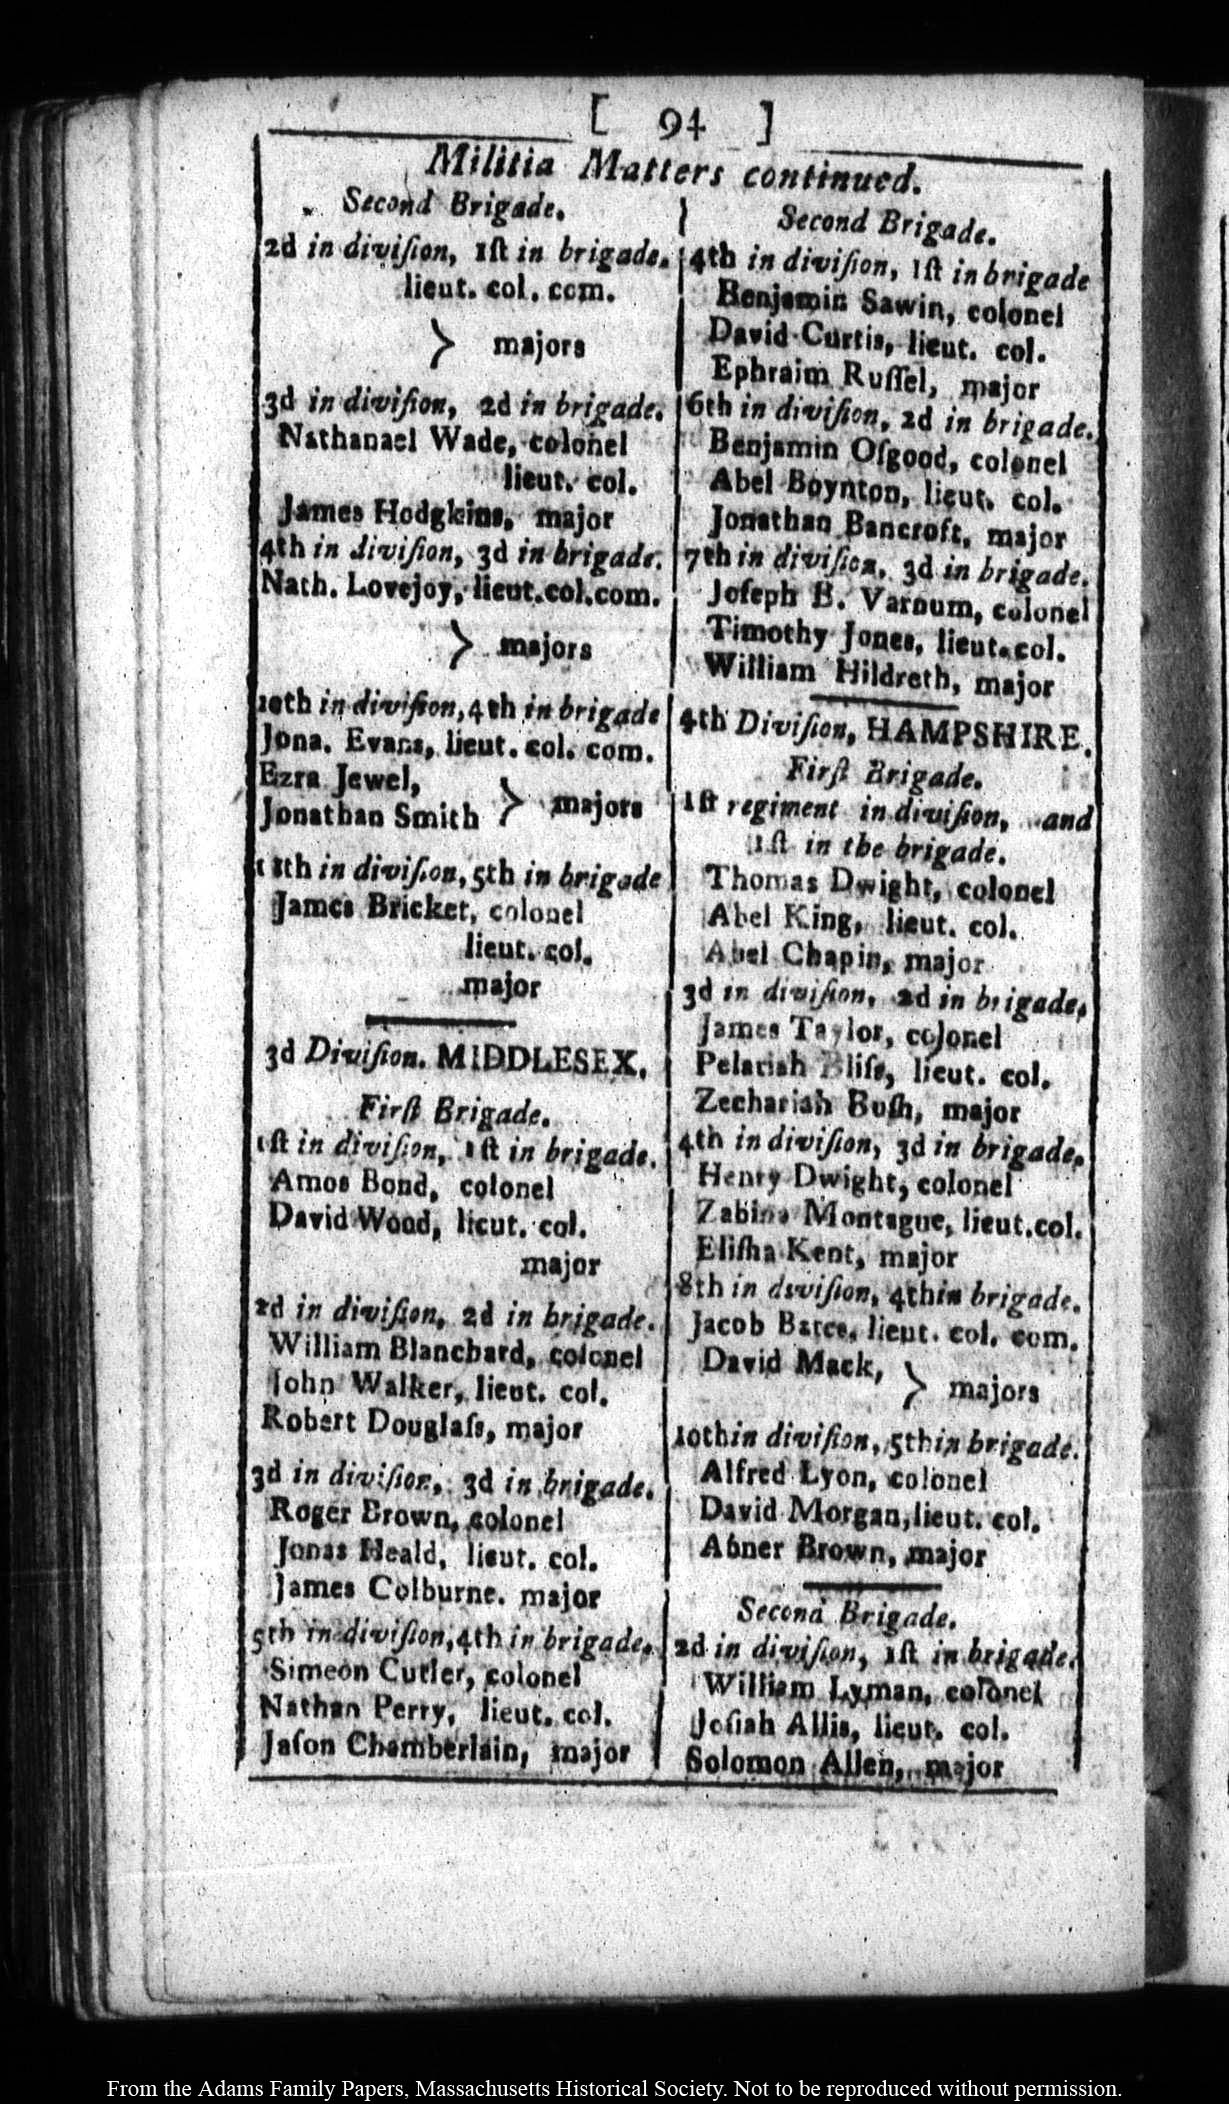 [ 94 ]
Militia Matters continued.
Second Brigade.
2d in diviſion, 1ſt in brigade.
lieut. col. com.
} majors
3d in diviſion, 2d in brigade.
Nathanael Wade, colonel
lieut. col.
James Hodgkins, major
4th in diviſion, 3d in brigade.
Nath. Lovejoy, lieut.col.com.
} majors
10th in diviſion, 4th in brigade
Jona. Evans, lieut. col. com.
Ezra Jewel,
Jonathan Smith } majors
11th in diviſion, 5th in brigade
James Bricket, colonel
lieut. col.
major
3d Diviſion. MIDDLESEX.
Firſt Brigade.
1ſt in diviſion, 1ſt in brigade.
Amos Bond, colonel
David Wood, lieut. col.
major
2d in diviſion, 2d in brigade.
William Blanchard, colonel
John Walker, lieut. col.
Robert Douglaſs, major
3d in diviſion, 3d in brigade.
Roger Brown, colonel
Jonas Heald, lieut. col.
James Colburne. major
5th in diviſion, 4th in brigade.
Simeon Cutler, colonel
Nathan Perry, lieut. col.
Jaſon Chamberlain, major
Second Brigade.
4th in diviſion, 1ſt in brigade
Benjamin Sawin, colonel
David Curtis, lieut. col.
Ephraim Ruſſel, major
6th in diviſion, 2d in brigade.
Benjamin Oſgood, colonel
Abel Boynton, lieut. col.
Jonathan Bancroft, major
7th in diviſion, 3d in brigade.
Joſeph B. Varnum, colonel
Timothy Jones, lieut. col.
William Hildreth, major
4th Diviſion, HAMPSHIRE.
Firſt Brigade.
1ſt regiment in diviſion, and
1ſt in the brigade.
Thomas Dwight, colonel
Abel King, lieut. col.
Abel Chapin, major
3d in diviſion, 2d in brigade.
James Taylor, colonel
Pelatiah Bliſs, lieut. col.
Zechariah Buſh, major
4th in diviſion, 3d in brigade.
Henry Dwight, colonel
Zabina Montague, lieut.col.
Eliſha Kent, major
8th in diviſion, 4th in brigade.
Jacob lieut. col. com.
David Mack, } majors
10th in diviſion, 5th in brigade.
Alfred Lyon, colonel
David Morgan, lieut. col.
Abner Brown, major
Second Brigade.
2d in diviſion, 1ſt in brigade.
William Lyman, colonel
Joſiah Allis, lieut. col.
Solomon Allen, major
From the Adams Family Papers, Massachusetts Historical Society. Not to be reproduced without permission.